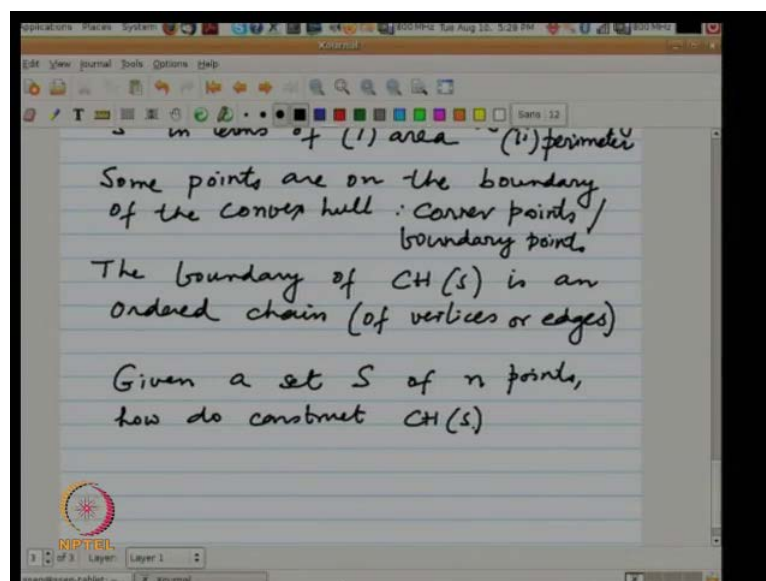 Applications Places System 800 MHz Tue Aug 10, 5:29 PM 800 MHz
Xournal
Edit View Journal Tools Options Help
T Sans 12
in terms of (i) area (ii) perimeter
Some points are on the boundary
of the convex hull : corner points /
boundary points
The boundary of CH(S) is an
ordered chain (of vertices or edges)
Given a set S of n points,
how do construct CH(S)
NPTEL
3 of 3 Layer: Layer 1